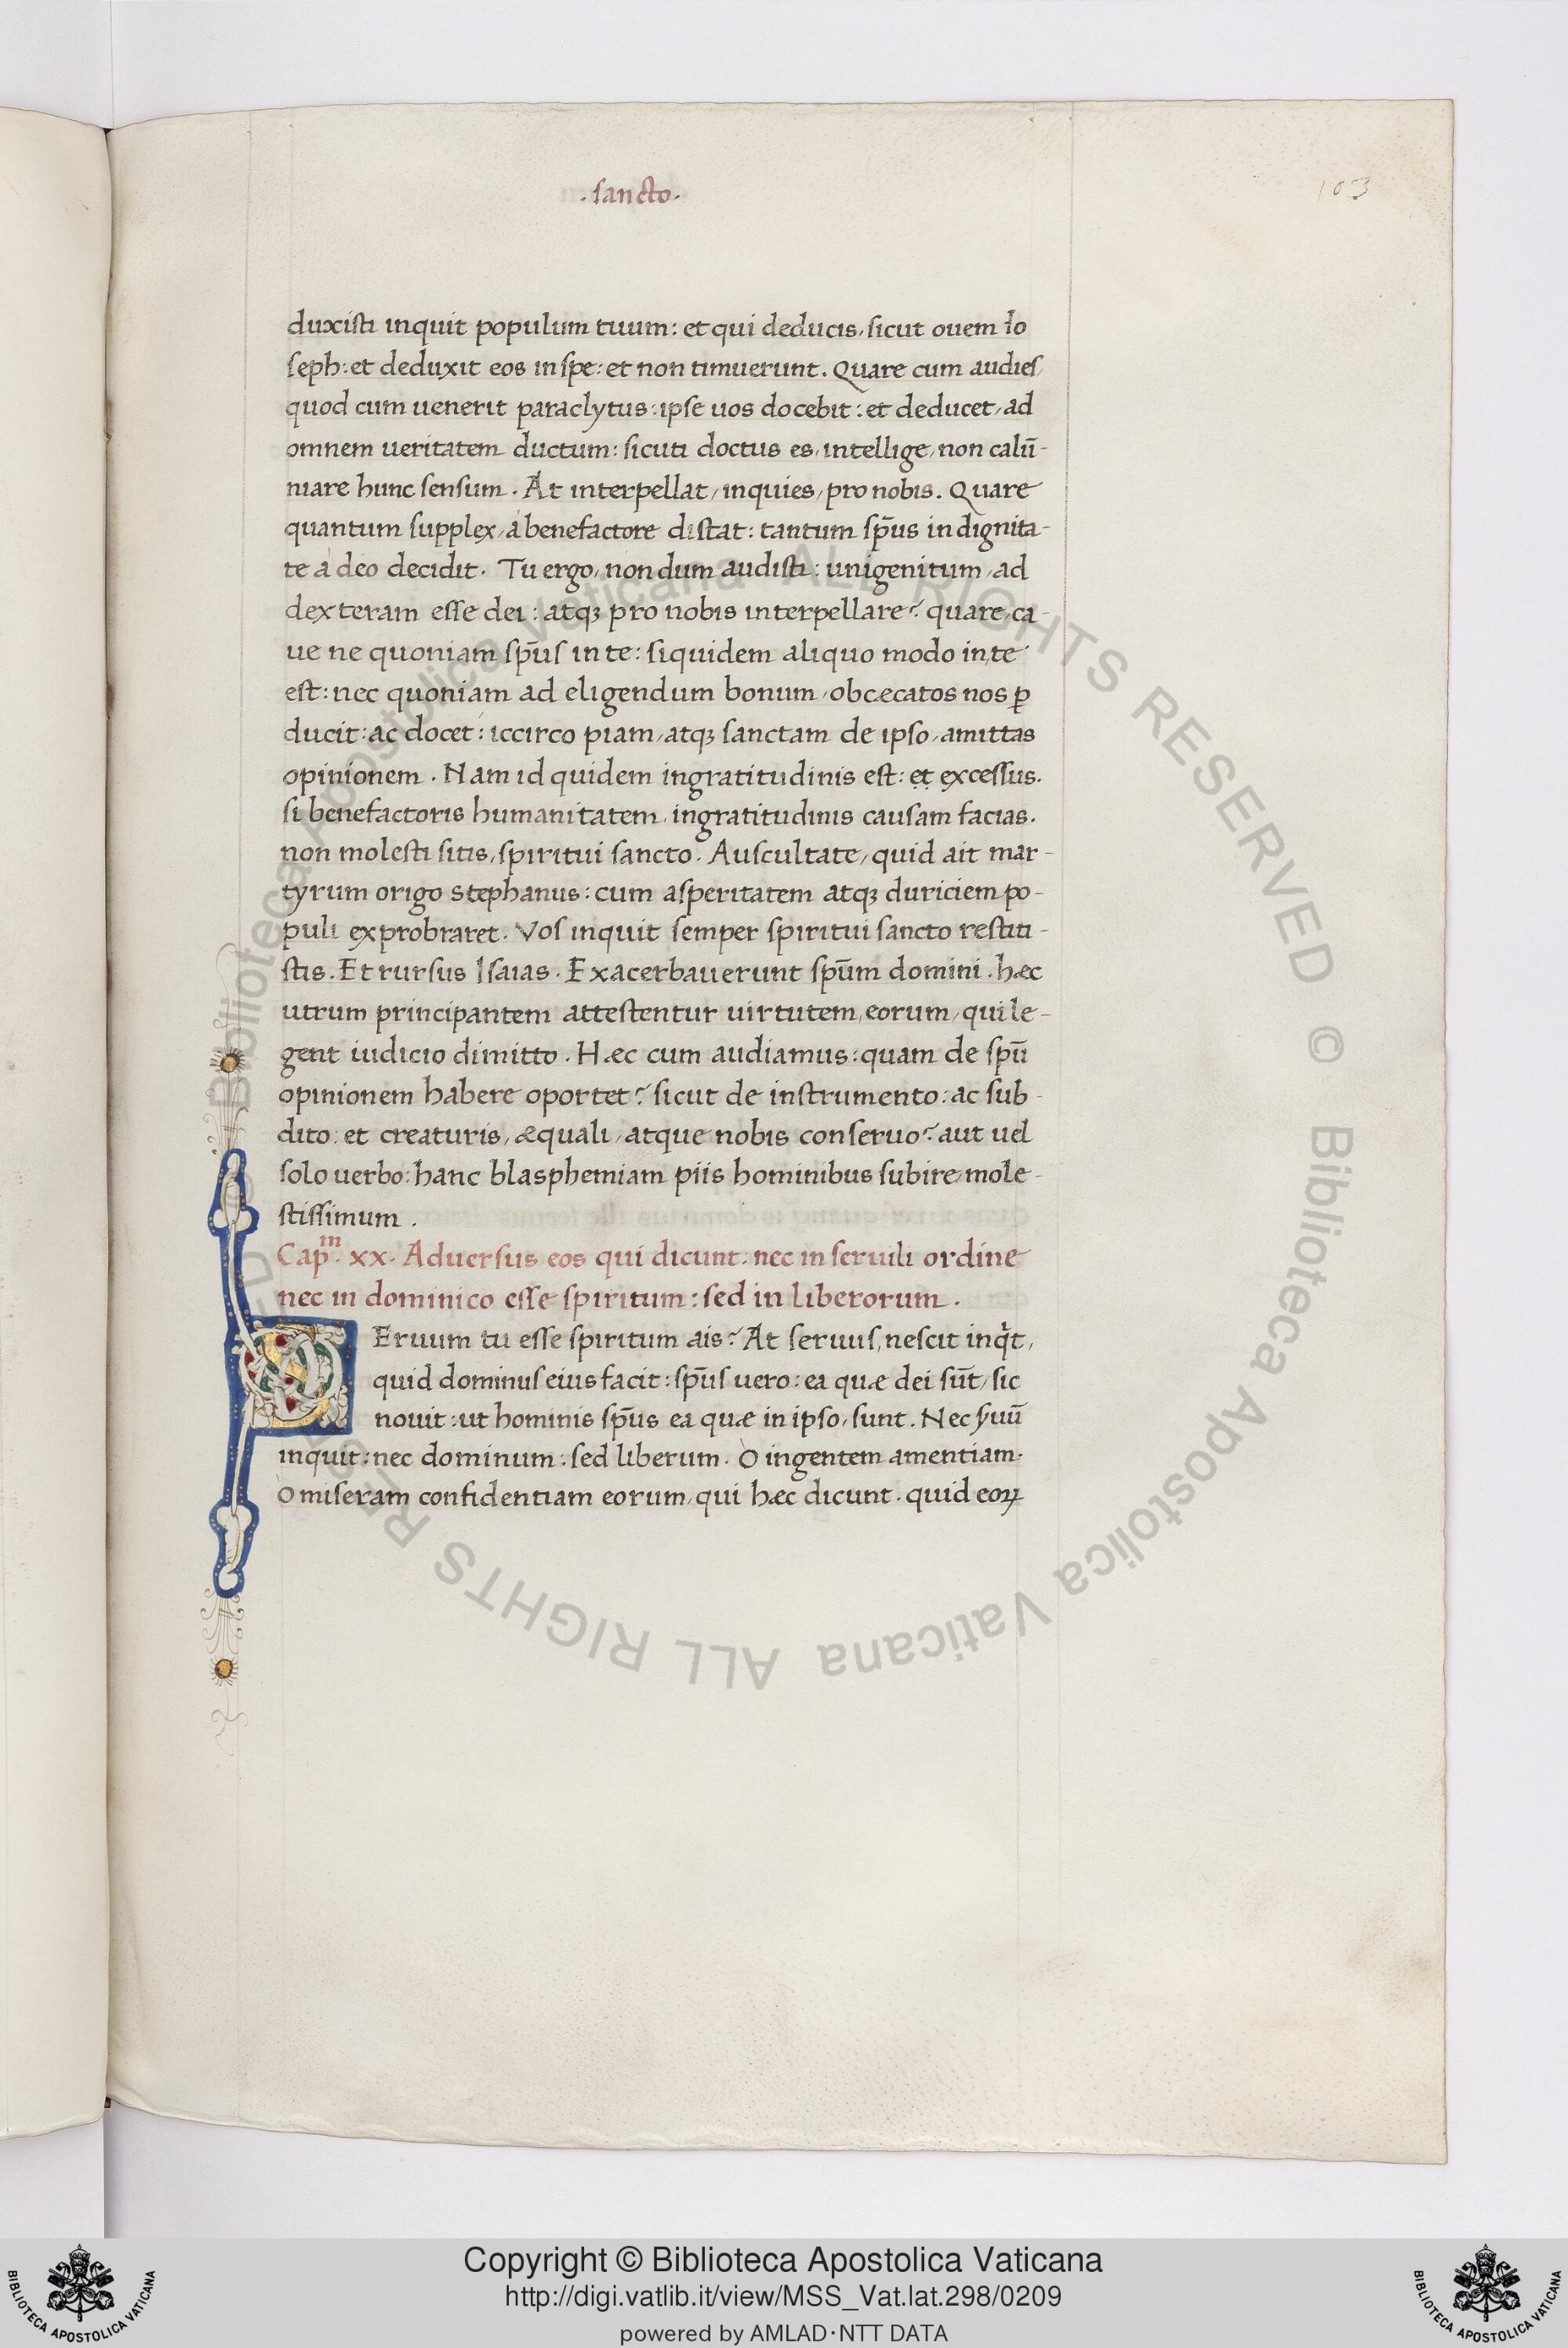 · sancto ·
103
duxisti inquit populum tuum : et qui deducis, sicut ouem Io
seph : et deduxit eos in spe : et non timuerunt . Quare cum audies,
quod cum uenerit paraclytus : ipse uos docebit : et deducet, ad
omnem ueritatem ductum : sicuti doctus es, intellige, non calū-
niare hunc sensum . At interpellat, inquies, pro nobis . Quare
quantum supplex, a benefactore distat : tantum sp̄us in dignita-
te a deo decidit . Tu ergo, non dum audisti : unigenitum, ad
dexteram esse dei : atqꝫ pro nobis interpellare ? quare, ca-
ue ne quoniam sp̄us in te : siquidem aliquo modo in te
est : nec quoniam ad eligendum bonum, obcæcatos nos ꝑ
ducit : ac docet : iccirco piam, atqꝫ sanctam de ipso, amittas
opinionem . Nam id quidem ingratitudinis est : et excessus .
si benefactoris humanitatem, ingratitudinis causam facias .
non molesti sitis, spiritui sancto . Auscultate, quid ait mar-
tyrum origo stephanus : cum asperitatem atqꝫ duriciem po-
puli exprobraret . Vos inquit semper spiritui sancto restiti-
stis . Et rursus Isaias . Exacerbauerunt sp̄um domini . hæc
utrum principantem attestentur uirtutem, eorum, qui le-
gent iudicio dimitto . Hæc cum audiamus : quam de spū
opinionem habere oportet ? sicut de instrumento : ac sub-
dito : et creaturis, æquali, atque nobis conseruo ? aut uel
solo uerbo : hanc blasphemiam piis hominibus subire, mole-
stissimum .
Cap.m xx. Aduersus eos qui dicunt . nec in seruili ordine
nec in dominico esse spiritum : sed in liberorum .
Eruum tu esse spiritum ais ? At seruus, nescit inqͥt,
quid dominus eius facit : sp̄us uero : ea quæ dei sūt, sic
nouit : ut hominis sp̄us ea quæ in ipso, sunt . Nec s̄uū
inquit : nec dominum : sed liberum . O ingentem amentiam .
O miseram confidentiam eorum, qui hæc dicunt . quid eoꝝ
Copyright © Biblioteca Apostolica Vaticana
http://digi.vatlib.it/view/MSS_Vat.lat.298/0209
powered by AMLAD·NTT DATA
BIBLIOTECA APOSTOLICA VATICANA
BIBLIOTECA APOSTOLICA VATICANA
© Biblioteca Apostolica Vaticana ALL RIGHTS RESERVED © Biblioteca Apostolica Vaticana ALL RIGHTS RESERVED